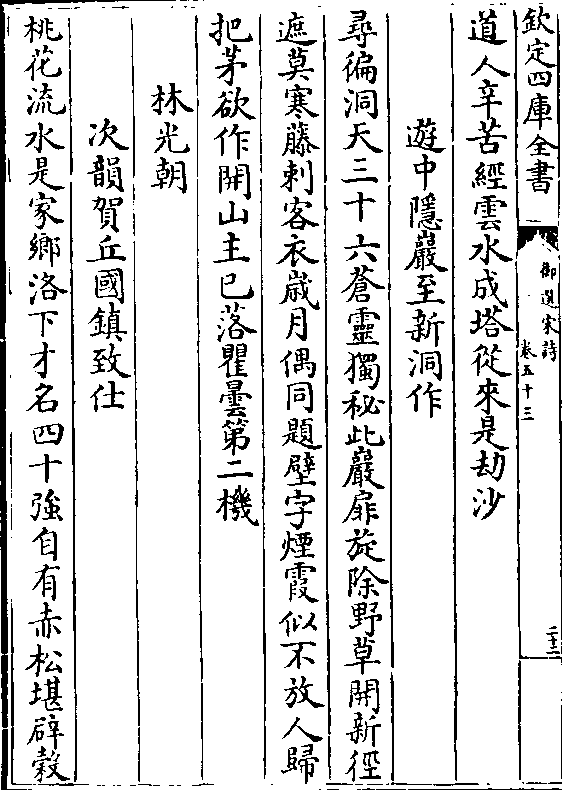 欽定四庫全書
御選宋詩
卷五十三
二十二
道人辛苦經雲水成塔從來是劫沙
遊中隱巖至新洞作
尋徧洞天三十六蒼靈獨秘此巖扉旋除野草開新徑
遮莫寒藤刺客衣歲月偶同題壁字煙霞似不放人歸
把茅欲作開山主已落瞿曇第二機
林光朝
次韻賀丘國鎮致仕
桃花流水是家鄉洛下才名四十強自有赤松堪辟穀